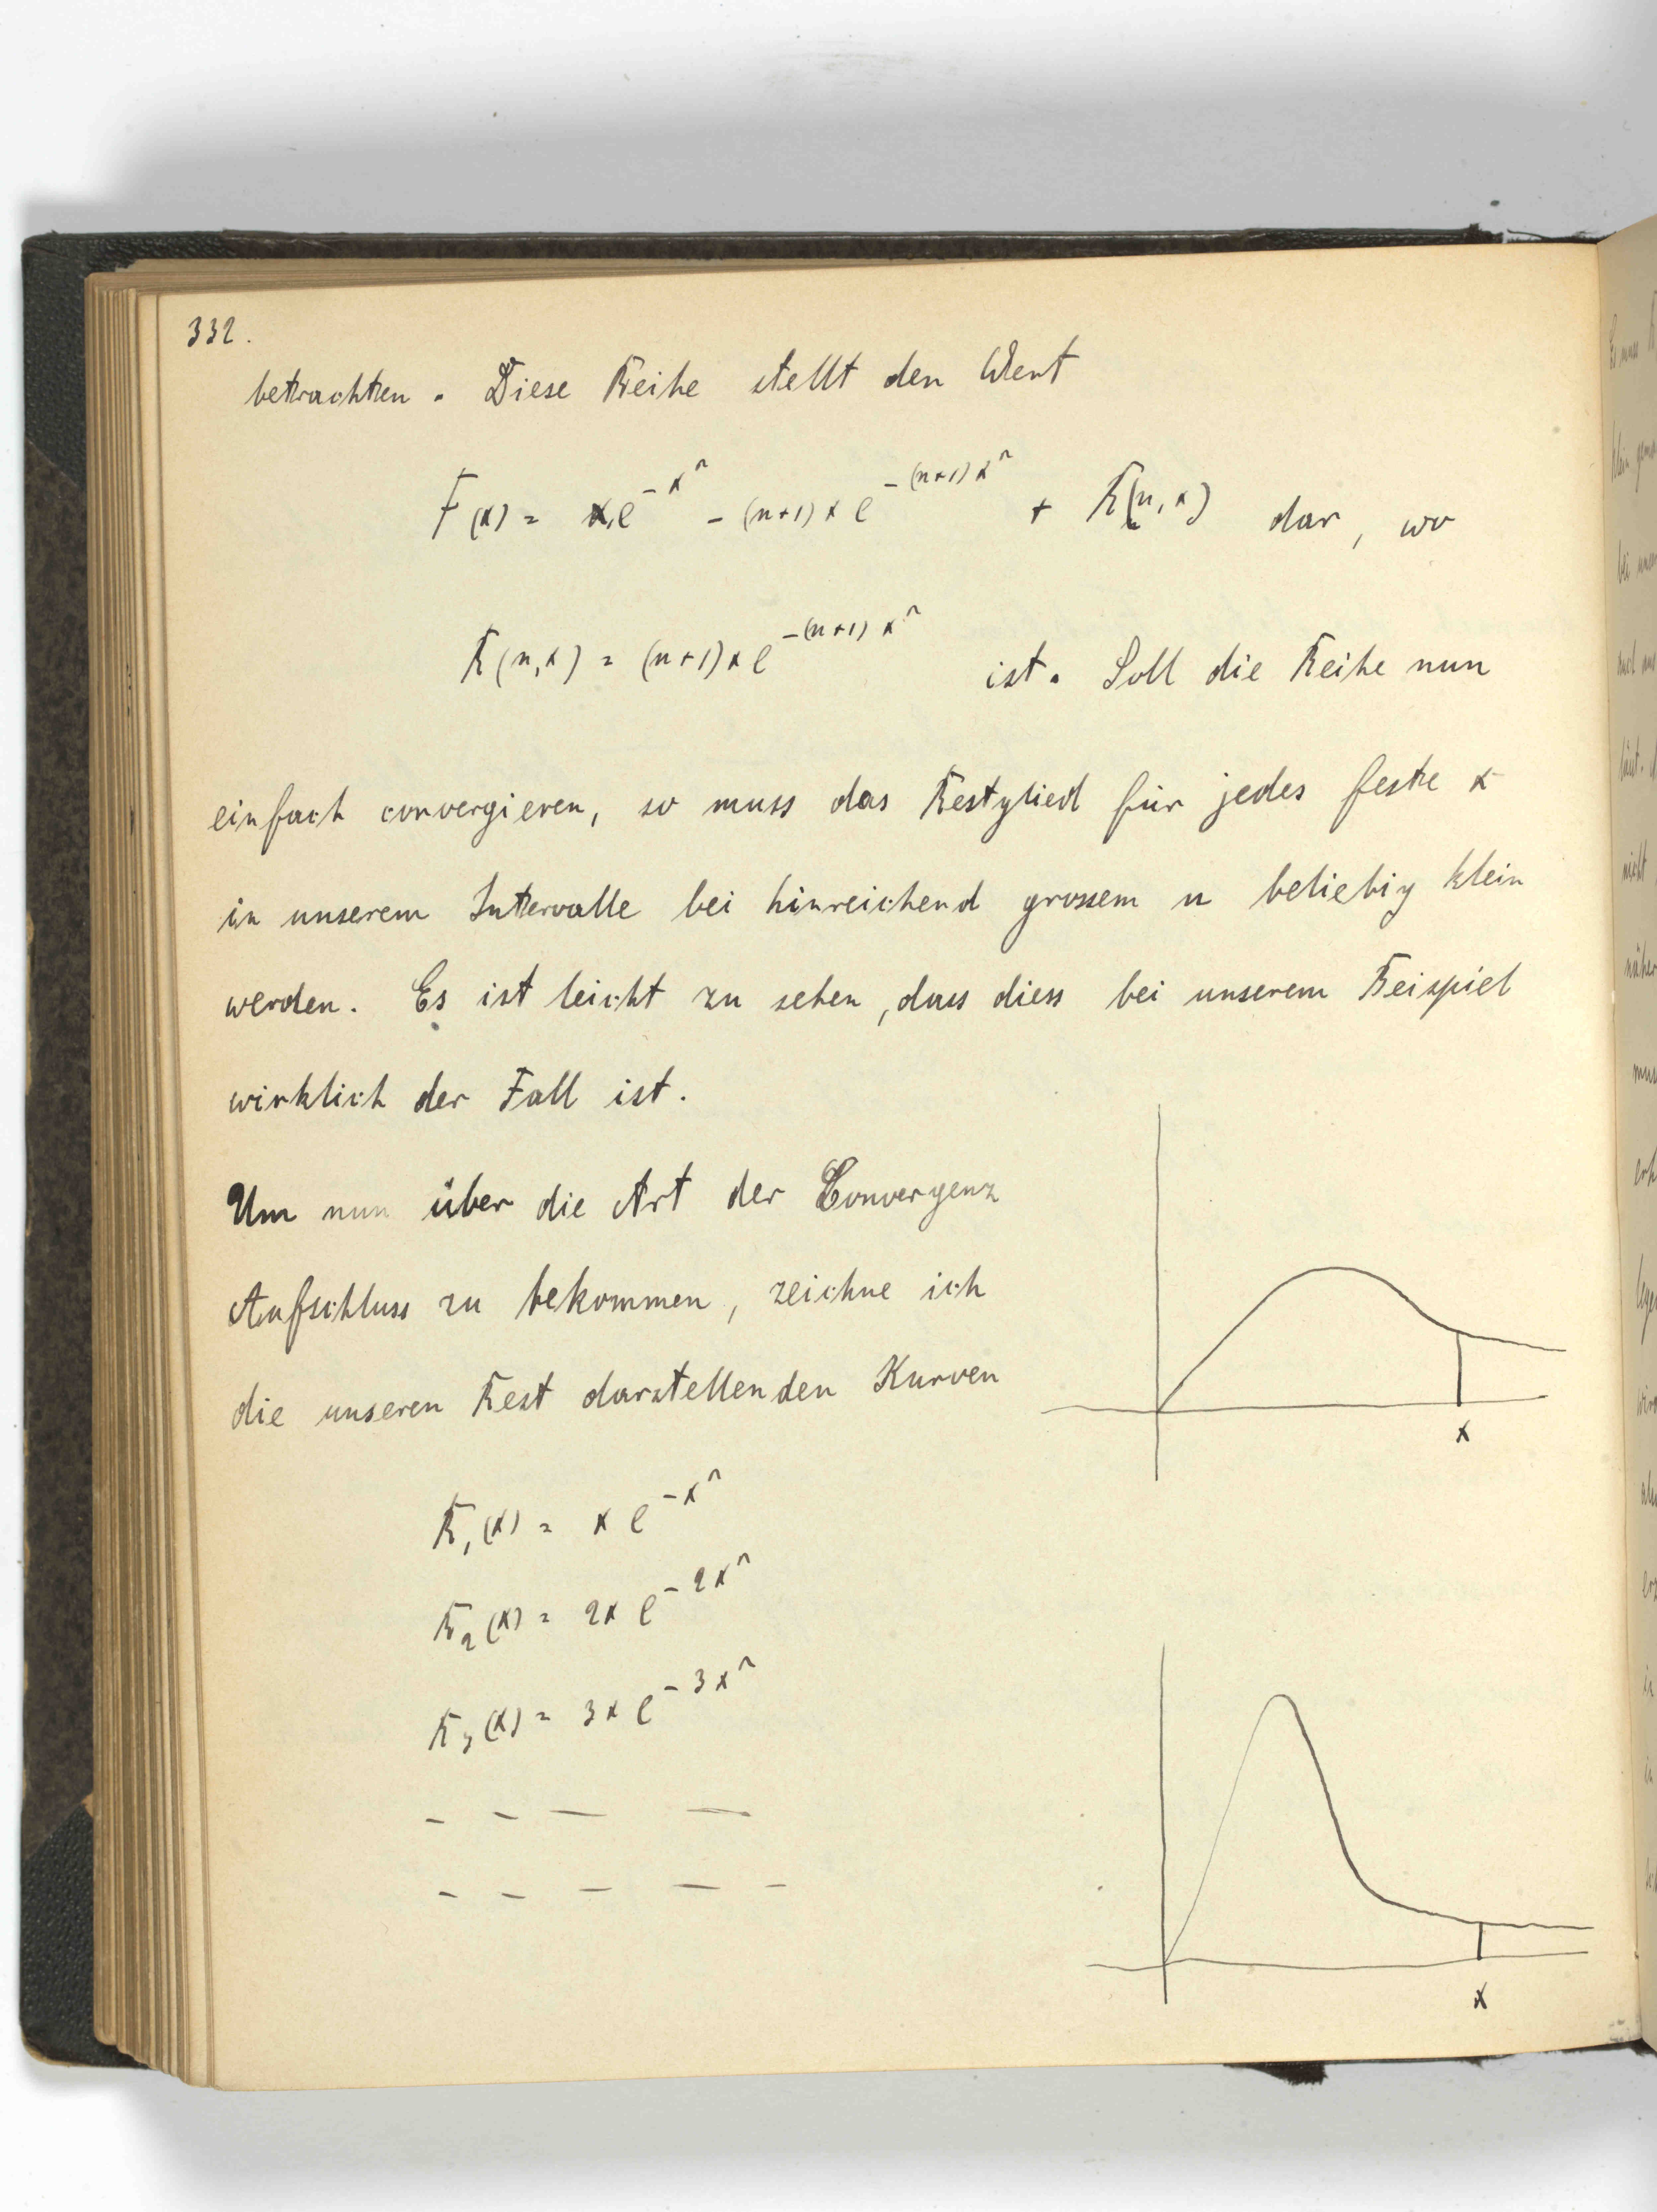 332.
betrachten. Diese Reihe stellt den Wert
F(x) = x e^{-x^2} - (n+1) x e^{-(n+1)x^2} + R(n,x) dar, wo
R(n,x) = (n+1) x e^{-(n+1)x^2} ist. Soll die Reihe nun
einfach convergieren, so muss das Restglied für jedes feste x
in unserem Intervalle bei hinreichend grossem n beliebig klein
werden. Es ist leicht zu sehen, dass diess bei unserem Beispiel
wirklich der Fall ist.
Um nun über die Art der Convergenz
Aufschluss zu bekommen, zeichne ich
die unseren Rest darstellenden Kurven
R_1(x) = x e^{-x^2}
R_2(x) = 2x e^{-2x^2}
R_3(x) = 3x e^{-3x^2}
- - - -
- - - - -
x
x